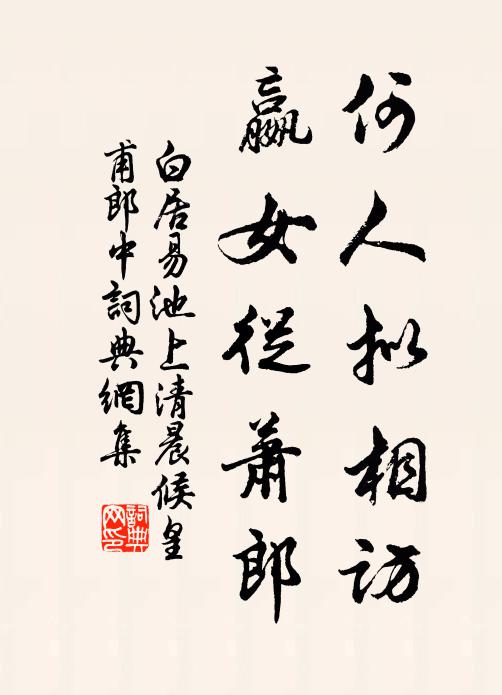 何人拟相訪
嬴女從蕭郎
白居易池上清晨候皇
甫郎中詞典網集
詞典
网印